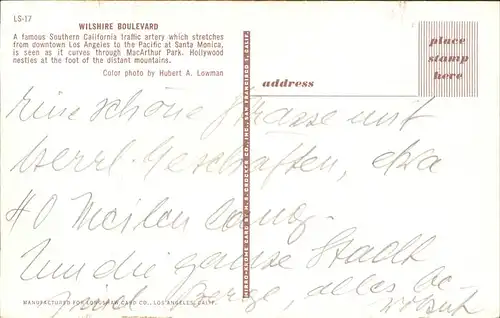 LS-17
WILSHIRE BOULEVARD
A famous Southern California traffic artery which stretches
from downtown Los Angeles to the Pacific at Santa Monica,
is seen as it curves through MacArthur Park. Hollywood
nestles at the foot of the distant mountains.
Color photo by Hubert A. Lowman
place
stamp
here
address
MIRRO-KROME CARD BY H. S. CROCKER CO., INC., SAN FRANCISCO 1, CALIF.
eine schöne Strasse mit
herrl. Geschäften, etwa
40 Meilen lang.
Um die ganze Stadt
sind Berge, alles be-
MANUFACTURED FOR LONGSHAW CARD CO., LOS ANGELES, CALIF.